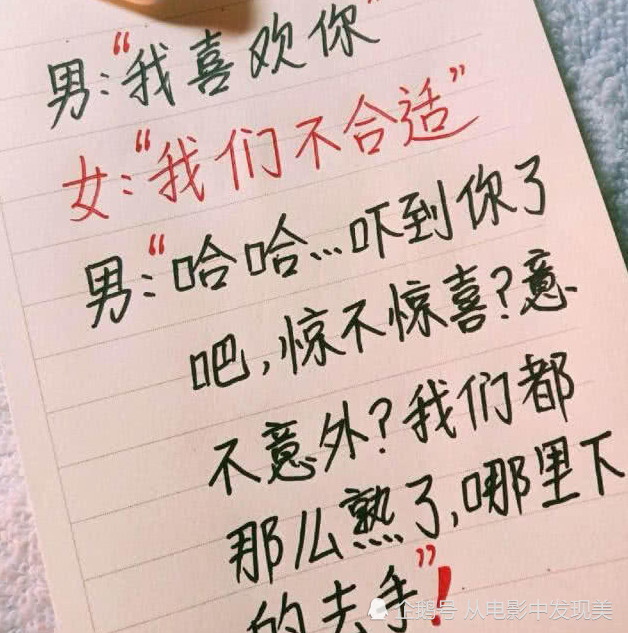 男:“我喜欢你”
女:“我们不合适”
男:“哈哈...吓到你了
吧,惊不惊喜?意
不意外?我们都
那么熟了,哪里下
的去手”!
企鹅号 从电影中发现美